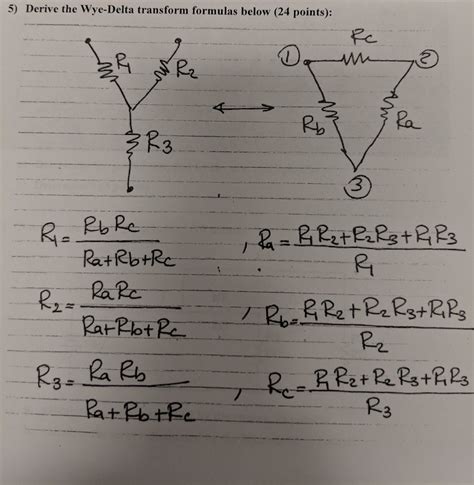 5) Derive the Wye-Delta transform formulas below (24 points):
R1 R2 R3
1 Rc 2
Rb Ra
3
R1 = Rb Rc / Ra+Rb+Rc , Ra = R1 R2+R2 R3+R1 R3 / R1
R2 = Ra Rc / Ra+Rb+Rc , Rb = R1 R2+R2 R3+R1 R3 / R2
R3 = Ra Rb / Ra+Rb+Rc , Rc = R1 R2+R2 R3+R1 R3 / R3